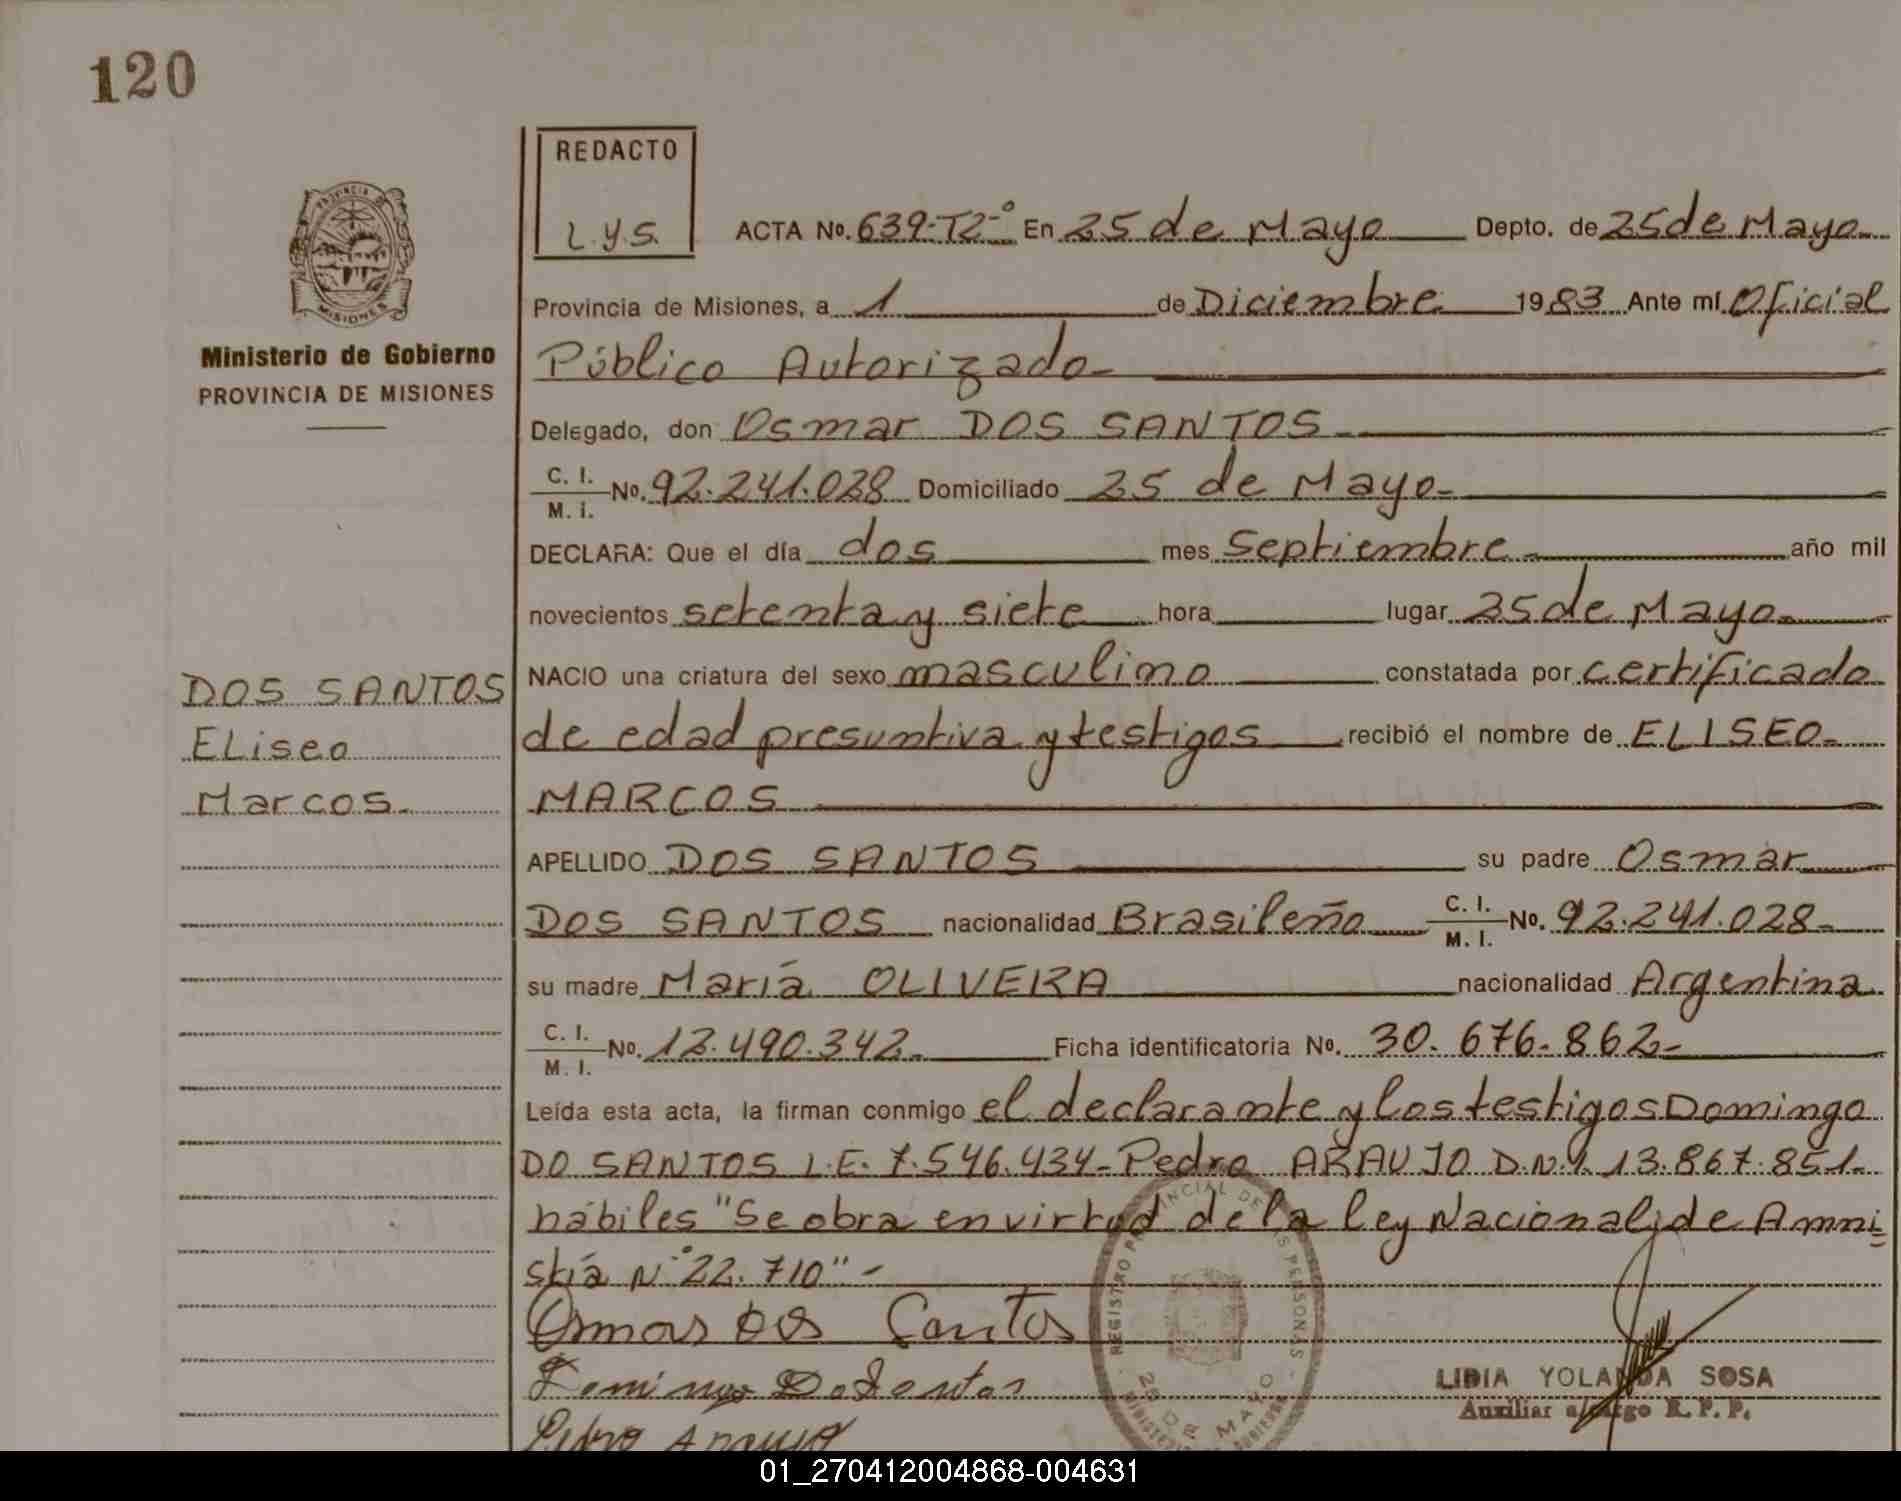 120
REDACTO
L.Y.S.
PROVINCIA DE
MISIONES
Ministerio de Gobierno
PROVINCIA DE MISIONES
DOS SANTOS
Eliseo
Marcos.
ACTA No. 639-T2-º En 25 de Mayo Depto. de 25 de Mayo
Provincia de Misiones, a 1 de Diciembre 1983 Ante mí Oficial
Público Autorizado-
Delegado, don Osmar DOS SANTOS-
C. I. / M. i. No. 92.241.028 Domiciliado 25 de Mayo-
DECLARA: Que el día dos mes Septiembre año mil
novecientos setenta y siete hora lugar 25 de Mayo-
NACIO una criatura del sexo masculino constatada por certificado
de edad presuntiva y testigos recibió el nombre de ELISEO-
MARCOS
APELLIDO DOS SANTOS su padre Osmar
DOS SANTOS nacionalidad Brasileño C. I. / M. I. No. 92.241.028-
su madre María OLIVEIRA nacionalidad Argentina
C. I. / M. I. No. 12.490.342- Ficha identificatoria No. 30.676.862-
Leída esta acta, la firman conmigo el declarante y los testigos Domingo
DO SANTOS L.E. 7.546.434- Pedro ARAUJO D.N.I. 13.867.851-
hábiles "Se obra en virtud de la ley Nacional de Amni
stía Nº 22.710"-
Osmar dos Santos
Domingo Do Santos
Pedro Araujo
REGISTRO PROVINCIAL DE LAS PERSONAS
25 DE MAYO
MINISTERIO DE GOBIERNO
LIDIA YOLANDA SOSA
Auxiliar a/cargo R. P. P.
01_270412004868-004631